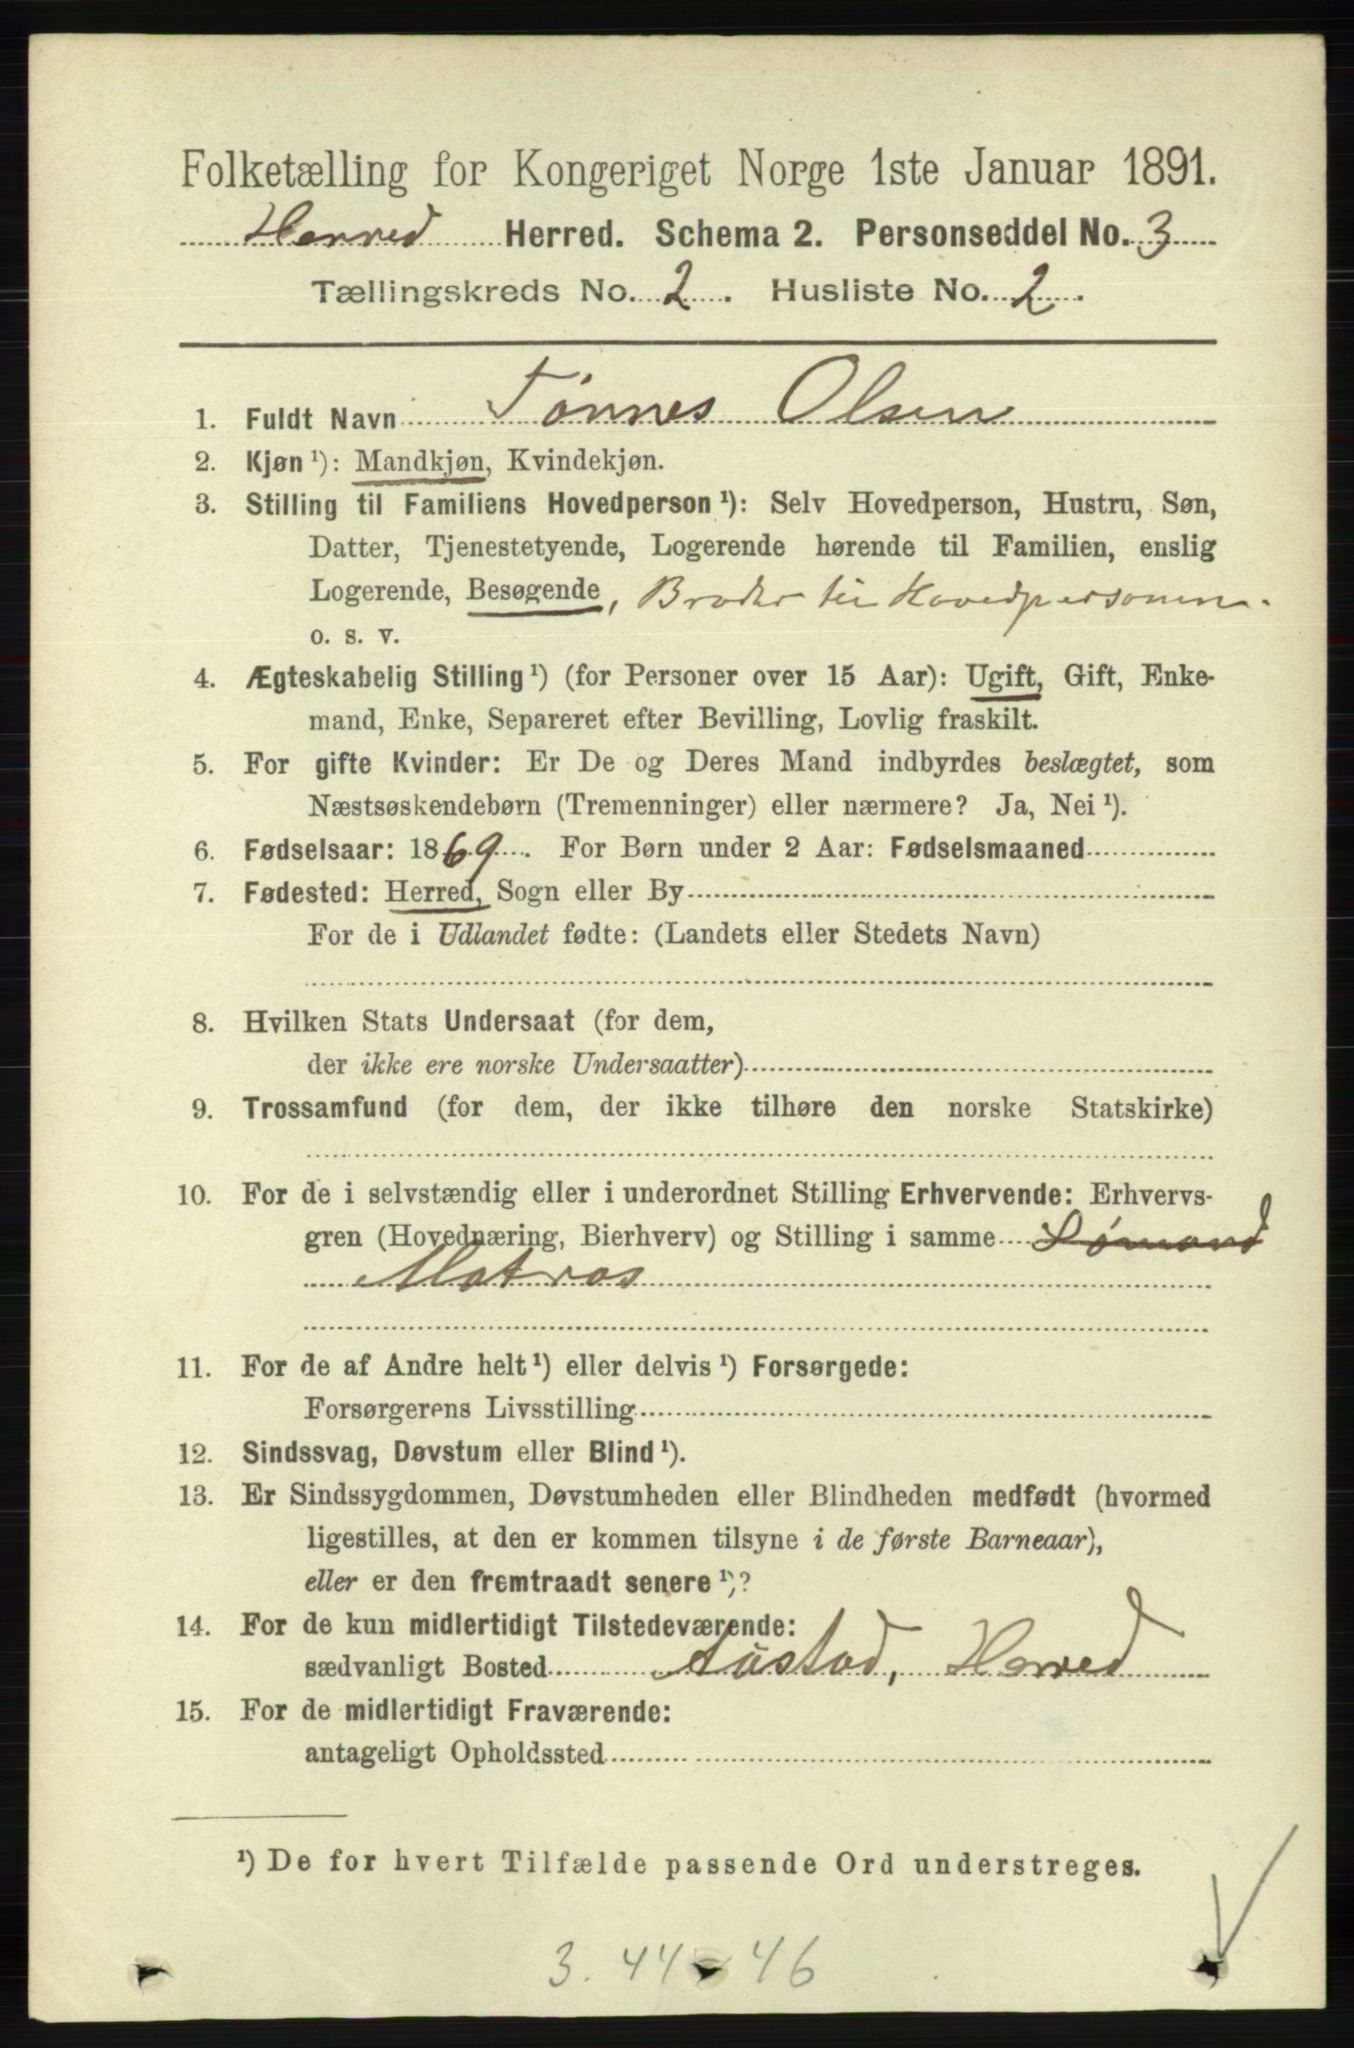 Folketælling for Kongeriget Norge 1ste Januar 1891.
Herred Herred. Schema 2. Personseddel No. 3
Tællingskreds No. 2. Husliste No. 2.
1. Fuldt Navn Tønnes Olsen
2. Kjøn ¹): Mandkjøn, Kvindekjøn.
3. Stilling til Familiens Hovedperson ¹): Selv Hovedperson, Hustru, Søn,
Datter, Tjenestetyende, Logerende hørende til Familien, enslig
Logerende, Besøgende, Broder til Hovedpersonen.
o. s. v.
4. Ægteskabelig Stilling ¹) (for Personer over 15 Aar): Ugift, Gift, Enke-
mand, Enke, Separeret efter Bevilling, Lovlig fraskilt.
5. For gifte Kvinder: Er De og Deres Mand indbyrdes beslægtet, som
Næstsøskendebørn (Tremenninger) eller nærmere? Ja, Nei ¹).
6. Fødselsaar: 1869. For Børn under 2 Aar: Fødselsmaaned
7. Fødested: Herred, Sogn eller By
For de i Udlandet fødte: (Landets eller Stedets Navn)
8. Hvilken Stats Undersaat (for dem,
der ikke ere norske Undersaatter)
9. Trossamfund (for dem, der ikke tilhøre den norske Statskirke)
10. For de i selvstændig eller i underordnet Stilling Erhvervende: Erhvervs-
gren (Hovednæring, Bierhverv) og Stilling i samme Sømand
Matros
11. For de af Andre helt ¹) eller delvis ¹) Forsørgede:
Forsørgerens Livsstilling
12. Sindssvag, Døvstum eller Blind ¹).
13. Er Sindssygdommen, Døvstumheden eller Blindheden medfødt (hvormed
ligestilles, at den er kommen tilsyne i de første Barneaar),
eller er den fremtraadt senere ¹)?
14. For de kun midlertidigt Tilstedeværende:
sædvanligt Bosted Herred
15. For de midlertidigt Fraværende:
antageligt Opholdssted
¹) De for hvert Tilfælde passende Ord understreges.
3. 44 - 46